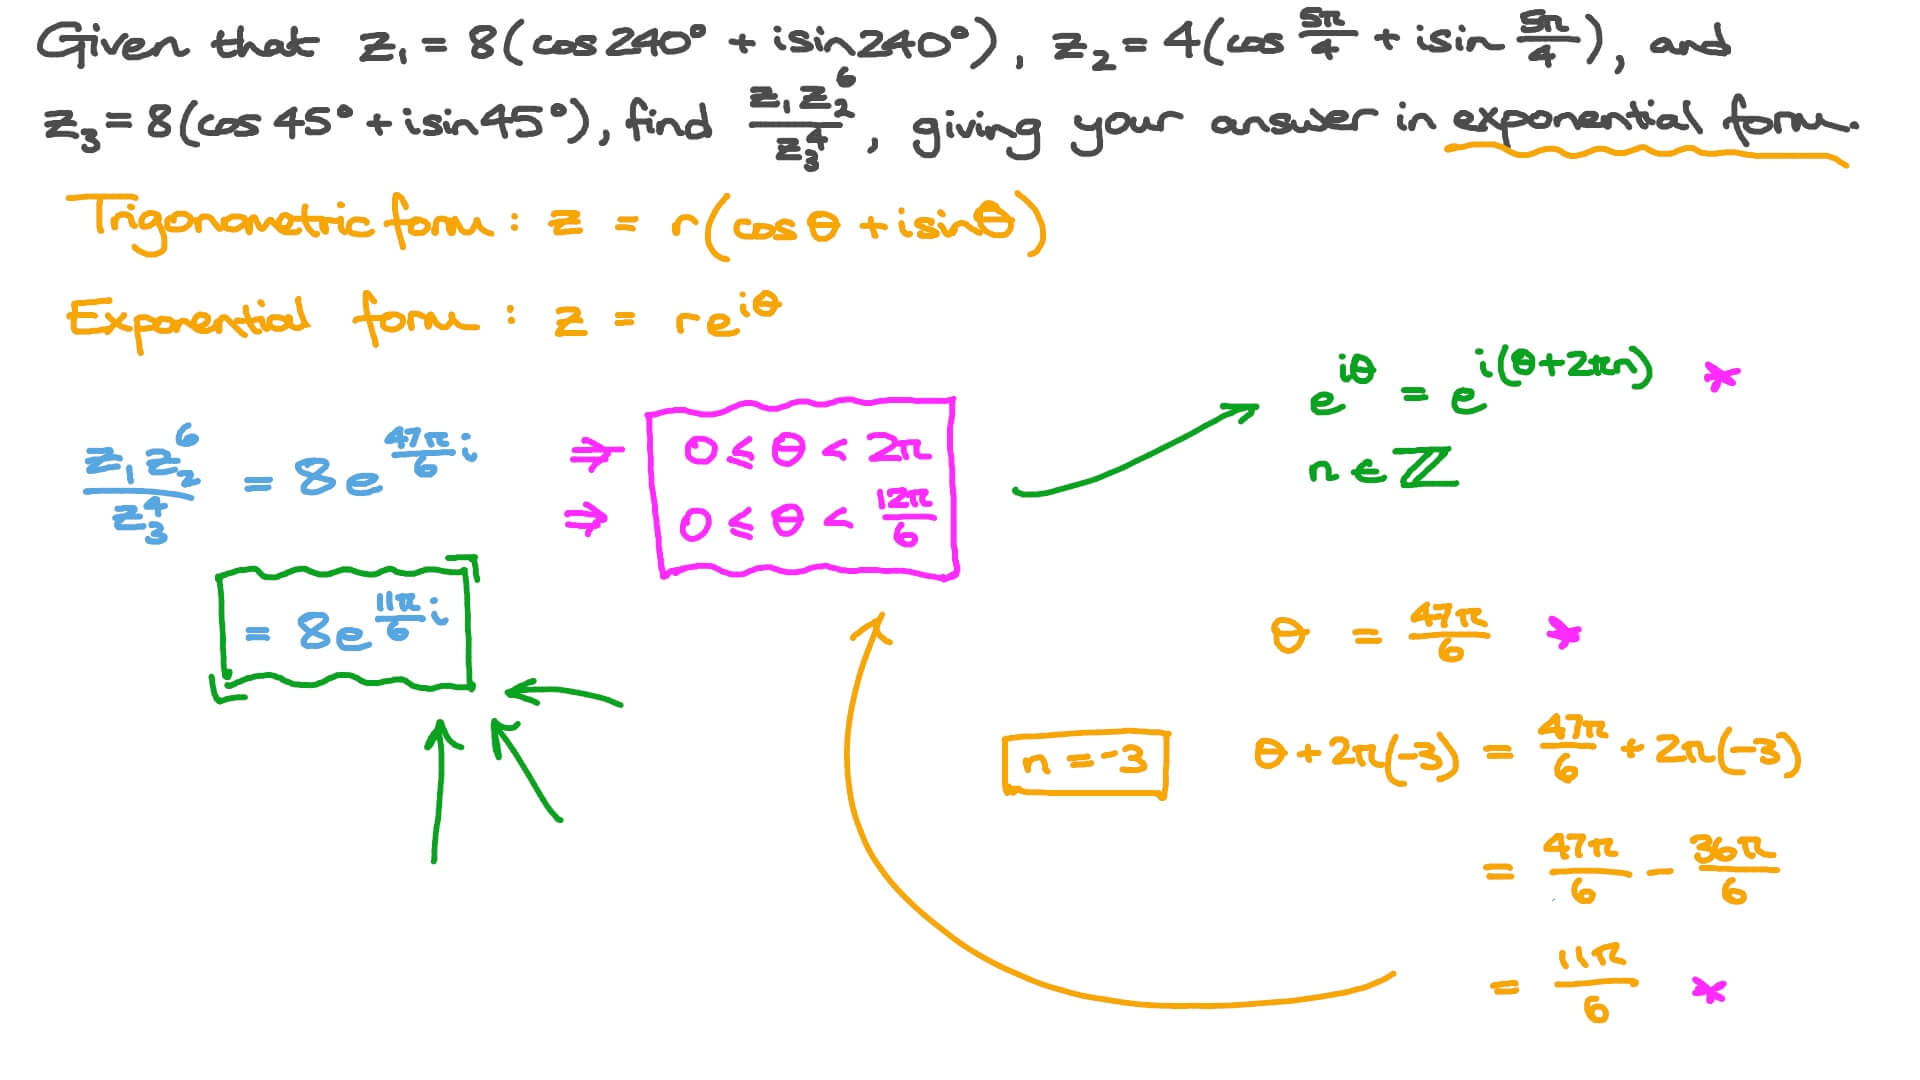 Given that z₁ = 8(cos 240° + isin 240°), z₂ = 4(cos 5π/4 + isin 5π/4), and
z₃ = 8(cos 45° + isin 45°), find z₁z₂⁶/z₃⁴, giving your answer in exponential form.
Trigonometric form : z = r(cosθ + isinθ)
Exponential form : z = re^(iθ)
z₁z₂⁶/z₃⁴ = 8e^(47π/6 i)
⇒ 0 ≤ θ < 2π
⇒ 0 ≤ θ < 12π/6
= 8e^(11π/6 i)
e^(iθ) = e^(i(θ+2πn)) *
n ∈ ℤ
θ = 47π/6 *
n = -3
θ + 2π(-3) = 47π/6 + 2π(-3)
= 47π/6 - 36π/6
= 11π/6 *